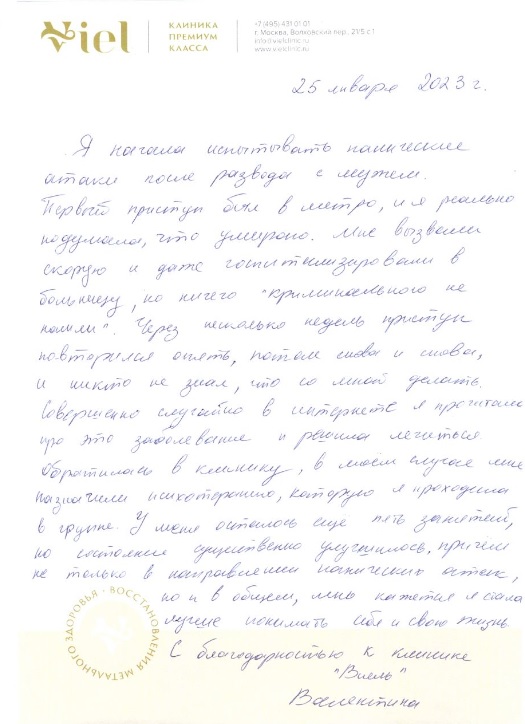 Viel
КЛИНИКА
ПРЕМИУМ
КЛАССА
+7 (495) 431 01 01
г. Москва, Волховский пер., 21/5 с 1
info@vielclinic.ru
www.vielclinic.ru
25 января 2023 г.
Я начала испытывать панические
атаки после развода с мужем.
Первый приступ был в метро, и я реально
подумала, что умираю. Мне вызвали
скорую и даже госпитализировали в
больницу, но ничего "криминального не
нашли". Через несколько недель приступ
повторился опять, потом снова и снова,
и никто не знал, что со мной делать.
Совершенно случайно в интернете я прочитала
про это заболевание и решила лечиться
Обратилась в клинику, в моем случае мне
назначили психотерапию, которую я проходила
в группе. У меня осталось еще пять занятий,
но состояние существенно улучшилось, причем
не только в направлении панических атак,
но и в общем, мне кажется я стала
лучше понимать себя и свою жизнь
С благодарностью к клинике
"Виель"
Валентина
ВОССТАНОВЛЕНИЯ МЕТАЛЬНОГО ЗДОРОВЬЯ